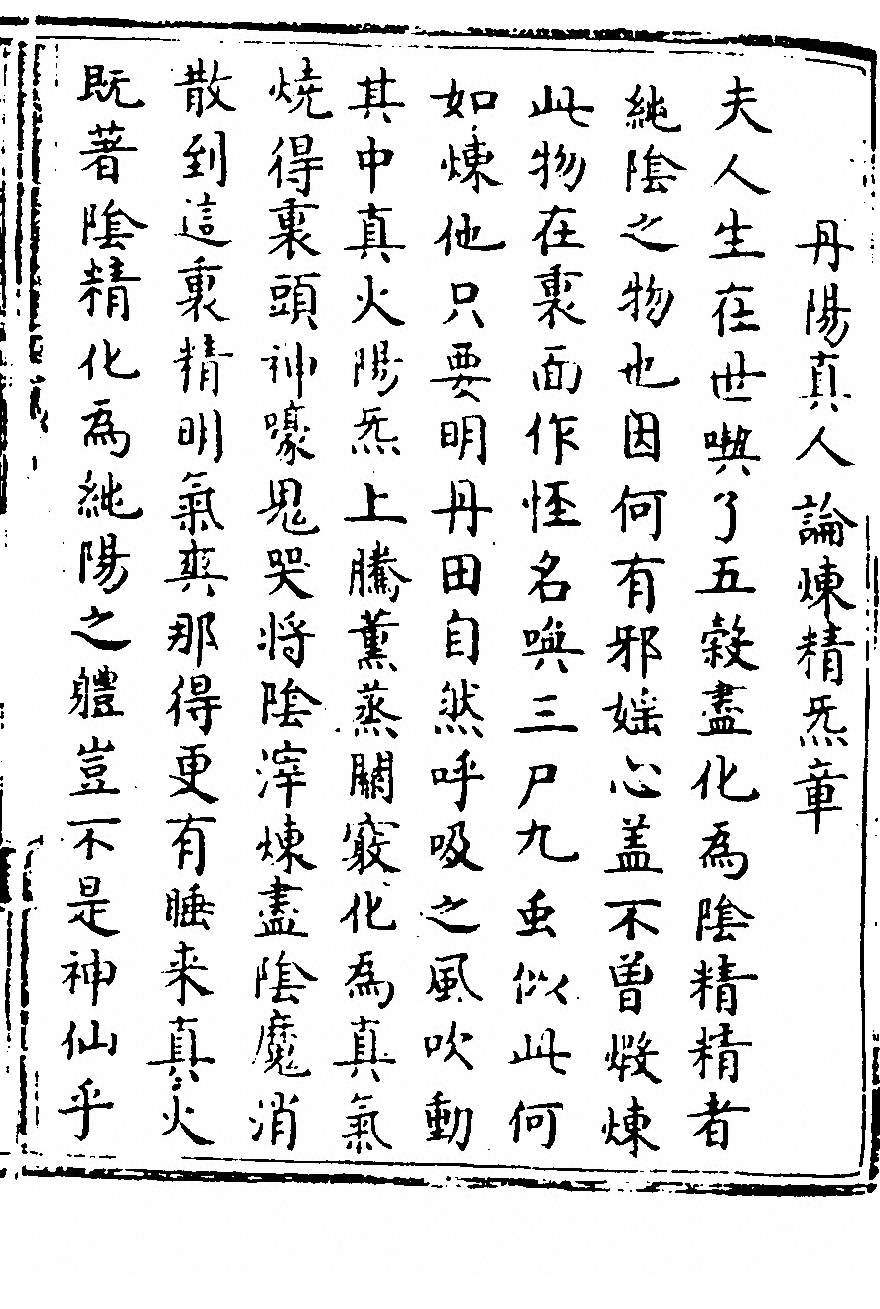 丹陽真人論煉精炁章
夫人生在世喫了五穀盡化為陰精精者
純陰之物也因何有邪婬心盖不曽煅煉
此物在裏面作怪名喚三尸九虫似此何
如煉他只要明丹田自然呼吸之風吹動
其中真火陽炁上騰薰蒸關竅化為真氣
燒得裏頭神嚎鬼哭將陰滓煉盡陰魔消
散到這裏精明氣爽那得更有睡来真火
既著陰精化為純陽之體豈不是神仙乎